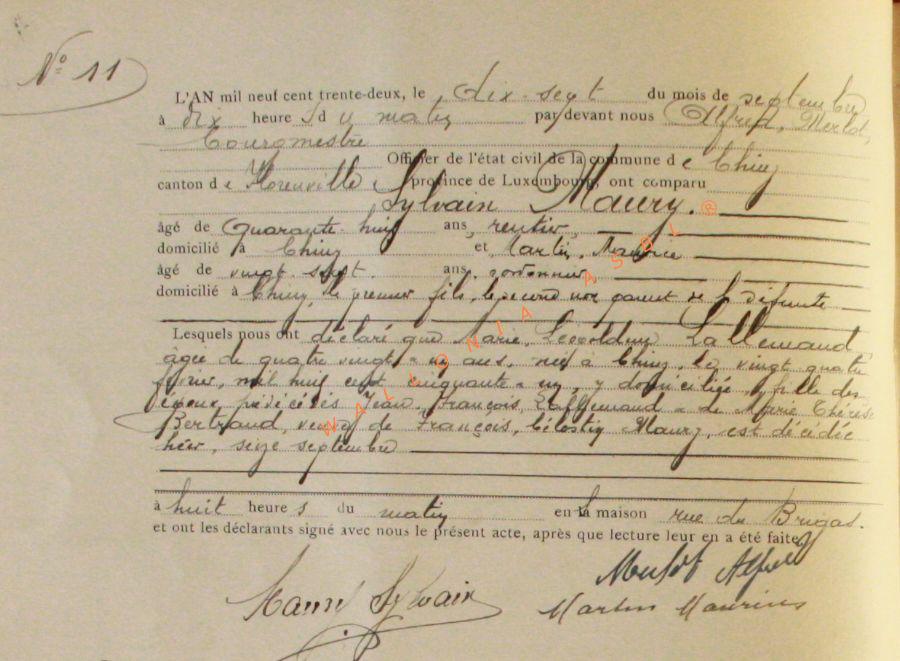 N° 11
L'AN mil neuf cent trente-deux, le dix-sept du mois de septembre
à dix heure s du matin par devant nous Alfred, Merlot,
bourgmestre
Officier de l'état civil de la commune de Chiny
canton de Florenville province de Luxembourg, ont comparu
Sylvain Maury.
âgé de quarante-huit ans, rentier,
domicilié à Chiny et Martin, Maurice
âgé de vingt sept. ans, cordonnier
domicilié à Chiny, le premier fils, le second non parent de la défunte
Lesquels nous ont déclaré que Marie, Léopoldine Lallemand
âgée de quatre vingt-un ans, née à Chiny, le vingt quatre
février, mil huit cent cinquante-un, y domiciliée, fille des
époux, prédécédés Jean, François, Lallemand - de Marie Thérèse
Bertrand, veuve de François, Célestin Maury, est décédée
hier, seize septembre
à huit heure s du matin en la maison rue du
et ont les déclarants signé avec nous le présent acte, après que lecture leur en a été faite
Maury Sylvain
Merlot Alfred
Martin Maurice
WALLONIA ASBL ®